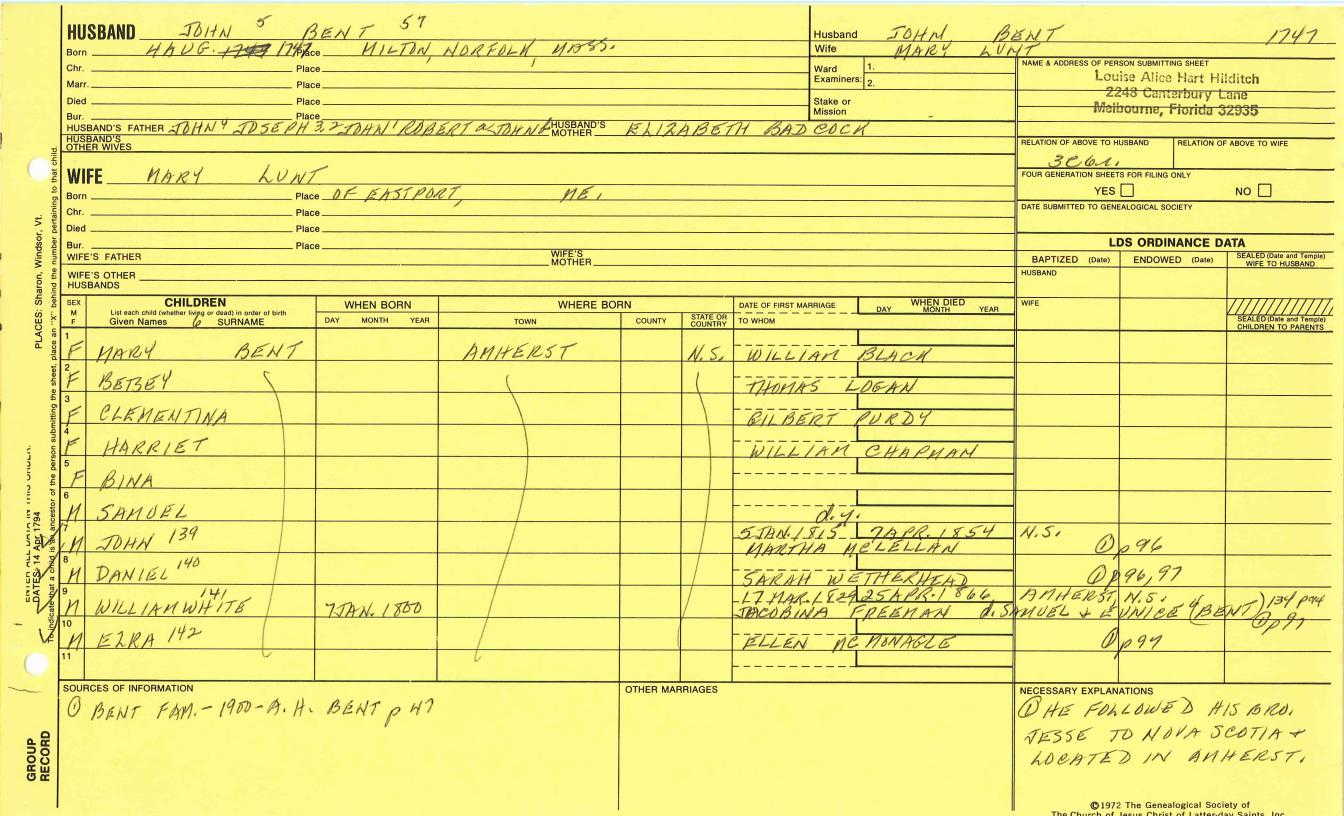 HUSBAND JOHN 5 BENT 57
Born 4 AUG. 1747 Place MILTON, NORFOLK, MASS.
Chr. Place
Marr. Place
Died Place
Bur. Place
HUSBAND'S FATHER JOHN 4 JOSEPH 3, 2 JOHN 1 ROBERT a JOHN b HUSBAND'S MOTHER ELIZABETH BADCOCK
HUSBAND'S OTHER WIVES
Husband JOHN BENT 1747
Wife MARY LUNT
Ward Examiners: 1.
2.
Stake or Mission
NAME & ADDRESS OF PERSON SUBMITTING SHEET
Louise Alice Hart Hilditch
2248 Canterbury Lane
Melbourne, Florida 32935
RELATION OF ABOVE TO HUSBAND RELATION OF ABOVE TO WIFE
FOUR GENERATION SHEETS FOR FILING ONLY
YES NO
DATE SUBMITTED TO GENEALOGICAL SOCIETY
WIFE MARY LUNT
Born Place OF EASTPORT, ME.
Chr. Place
Died Place
Bur. Place
WIFE'S FATHER WIFE'S MOTHER
WIFE'S OTHER HUSBANDS
LDS ORDINANCE DATA
BAPTIZED (Date) ENDOWED (Date) SEALED (Date and Temple) WIFE TO HUSBAND
HUSBAND
WIFE
SEALED (Date and Temple) CHILDREN TO PARENTS
SEX M F
CHILDREN
List each child (whether living or dead) in order of birth
Given Names 6 SURNAME
WHEN BORN
DAY MONTH YEAR
WHERE BORN
TOWN COUNTY STATE OR COUNTRY
DATE OF FIRST MARRIAGE
TO WHOM
WHEN DIED
DAY MONTH YEAR
1 F MARY BENT AMHERST N.S. WILLIAM BLACK
2 F BETSEY THOMAS LOGAN
3 F CLEMENTINA GILBERT PURDY
4 F HARRIET WILLIAM CHAPMAN
5 F BINA
6 M SAMUEL d.y.
7 M JOHN 139 5 JAN. 1815 7 APR. 1854 N.S.
MARTHA McLELLAN ① p 96
8 M DANIEL 140 SARAH WETHERHEAD ① p 96, 97
9 M WILLIAM WHITE 141 7 JAN. 1800 17 MAR. 1829 25 APR. 1866 AMHERST, N.S.
JACOBINA FREEMAN d. SAMUEL & EUNICE 4 (BENT) 134 p94 ① p 97
10 M EZRA 142 ELLEN McMONAGLE ① p 97
11
SOURCES OF INFORMATION
① BENT FAM. - 1900 - A. H. BENT p 47
OTHER MARRIAGES
NECESSARY EXPLANATIONS
① HE FOLLOWED HIS BRO.
JESSE TO NOVA SCOTIA &
LOCATED IN AMHERST.
©1972 The Genealogical Society of
The Church of Jesus Christ of Latter-day Saints, Inc.
PLACES: Sharon, Windsor, Vt.
To indicate that a child is an ancestor of the person submitting the sheet, place an "X" behind the number pertaining to that child.
ENTER ALL DATA IN THIS ORDER:
DATES: 14 Apr 1794
GROUP RECORD